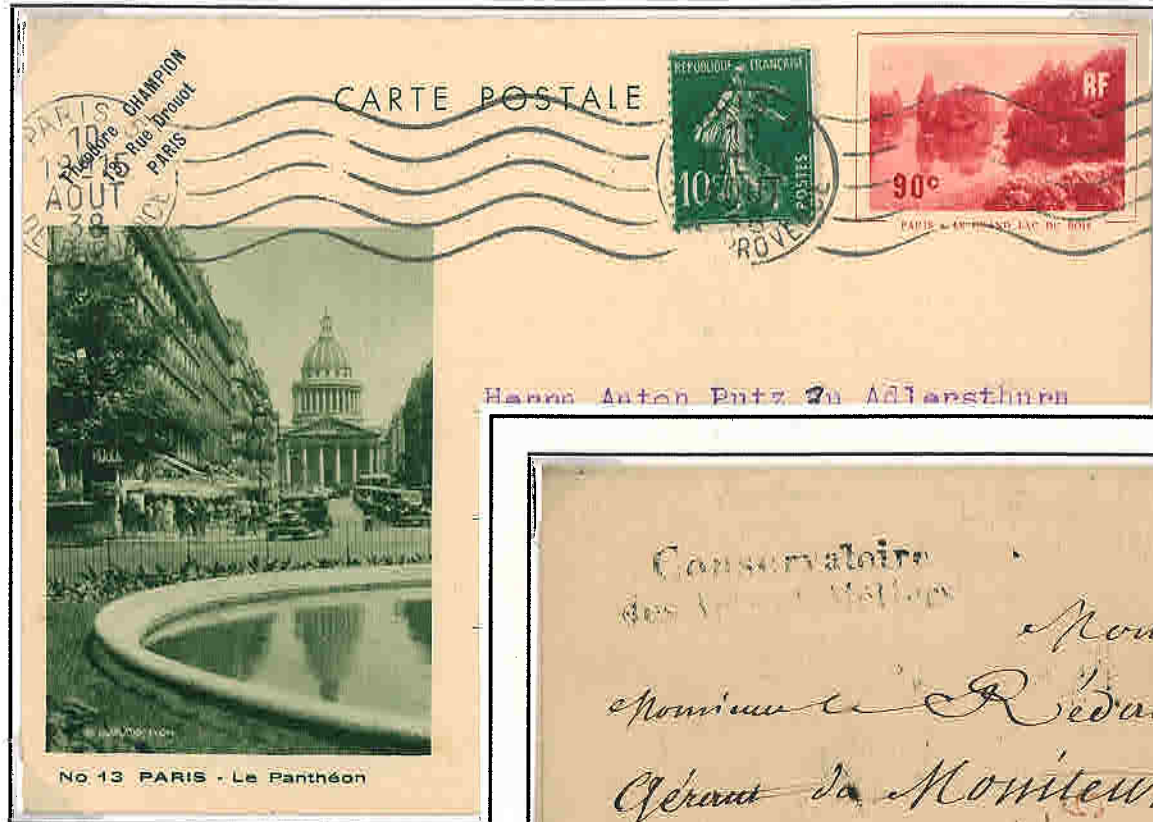 Théodore CHAMPION
13, Rue Drouot
PARIS
CARTE POSTALE
PARIS
10
AOUT
38
REPUBLIQUE FRANÇAISE
10
POSTES
AOUT
PROVENCE
RF
90c
PARIS - LE GRAND LAC DU BOIS
Herrn Anton Putz zu Adlersthurn
No 13 PARIS - Le Panthéon
Conservatoire
des
Monsieur le Rédac
Gérant du Moniteur